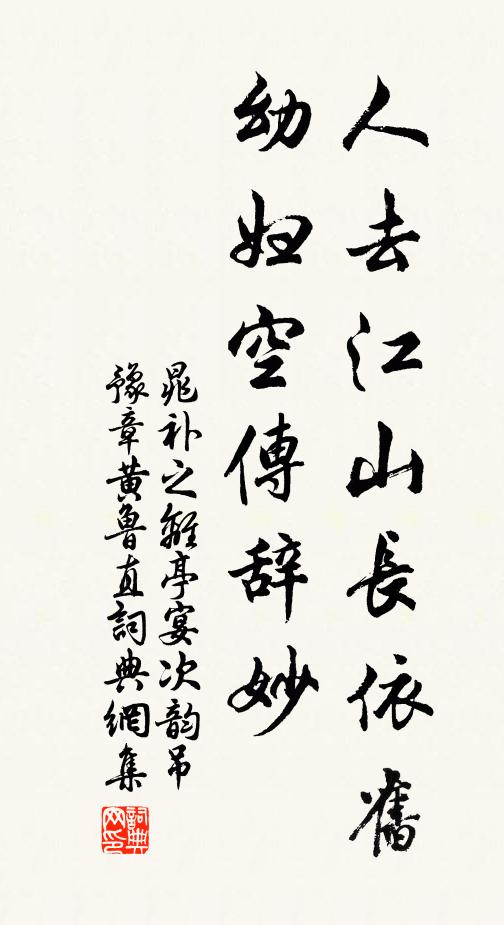 人去江山長依舊
幼妇空傳辞妙
晁补之離亭宴次韵吊
豫章黄魯直詞典網集
詞典
网印